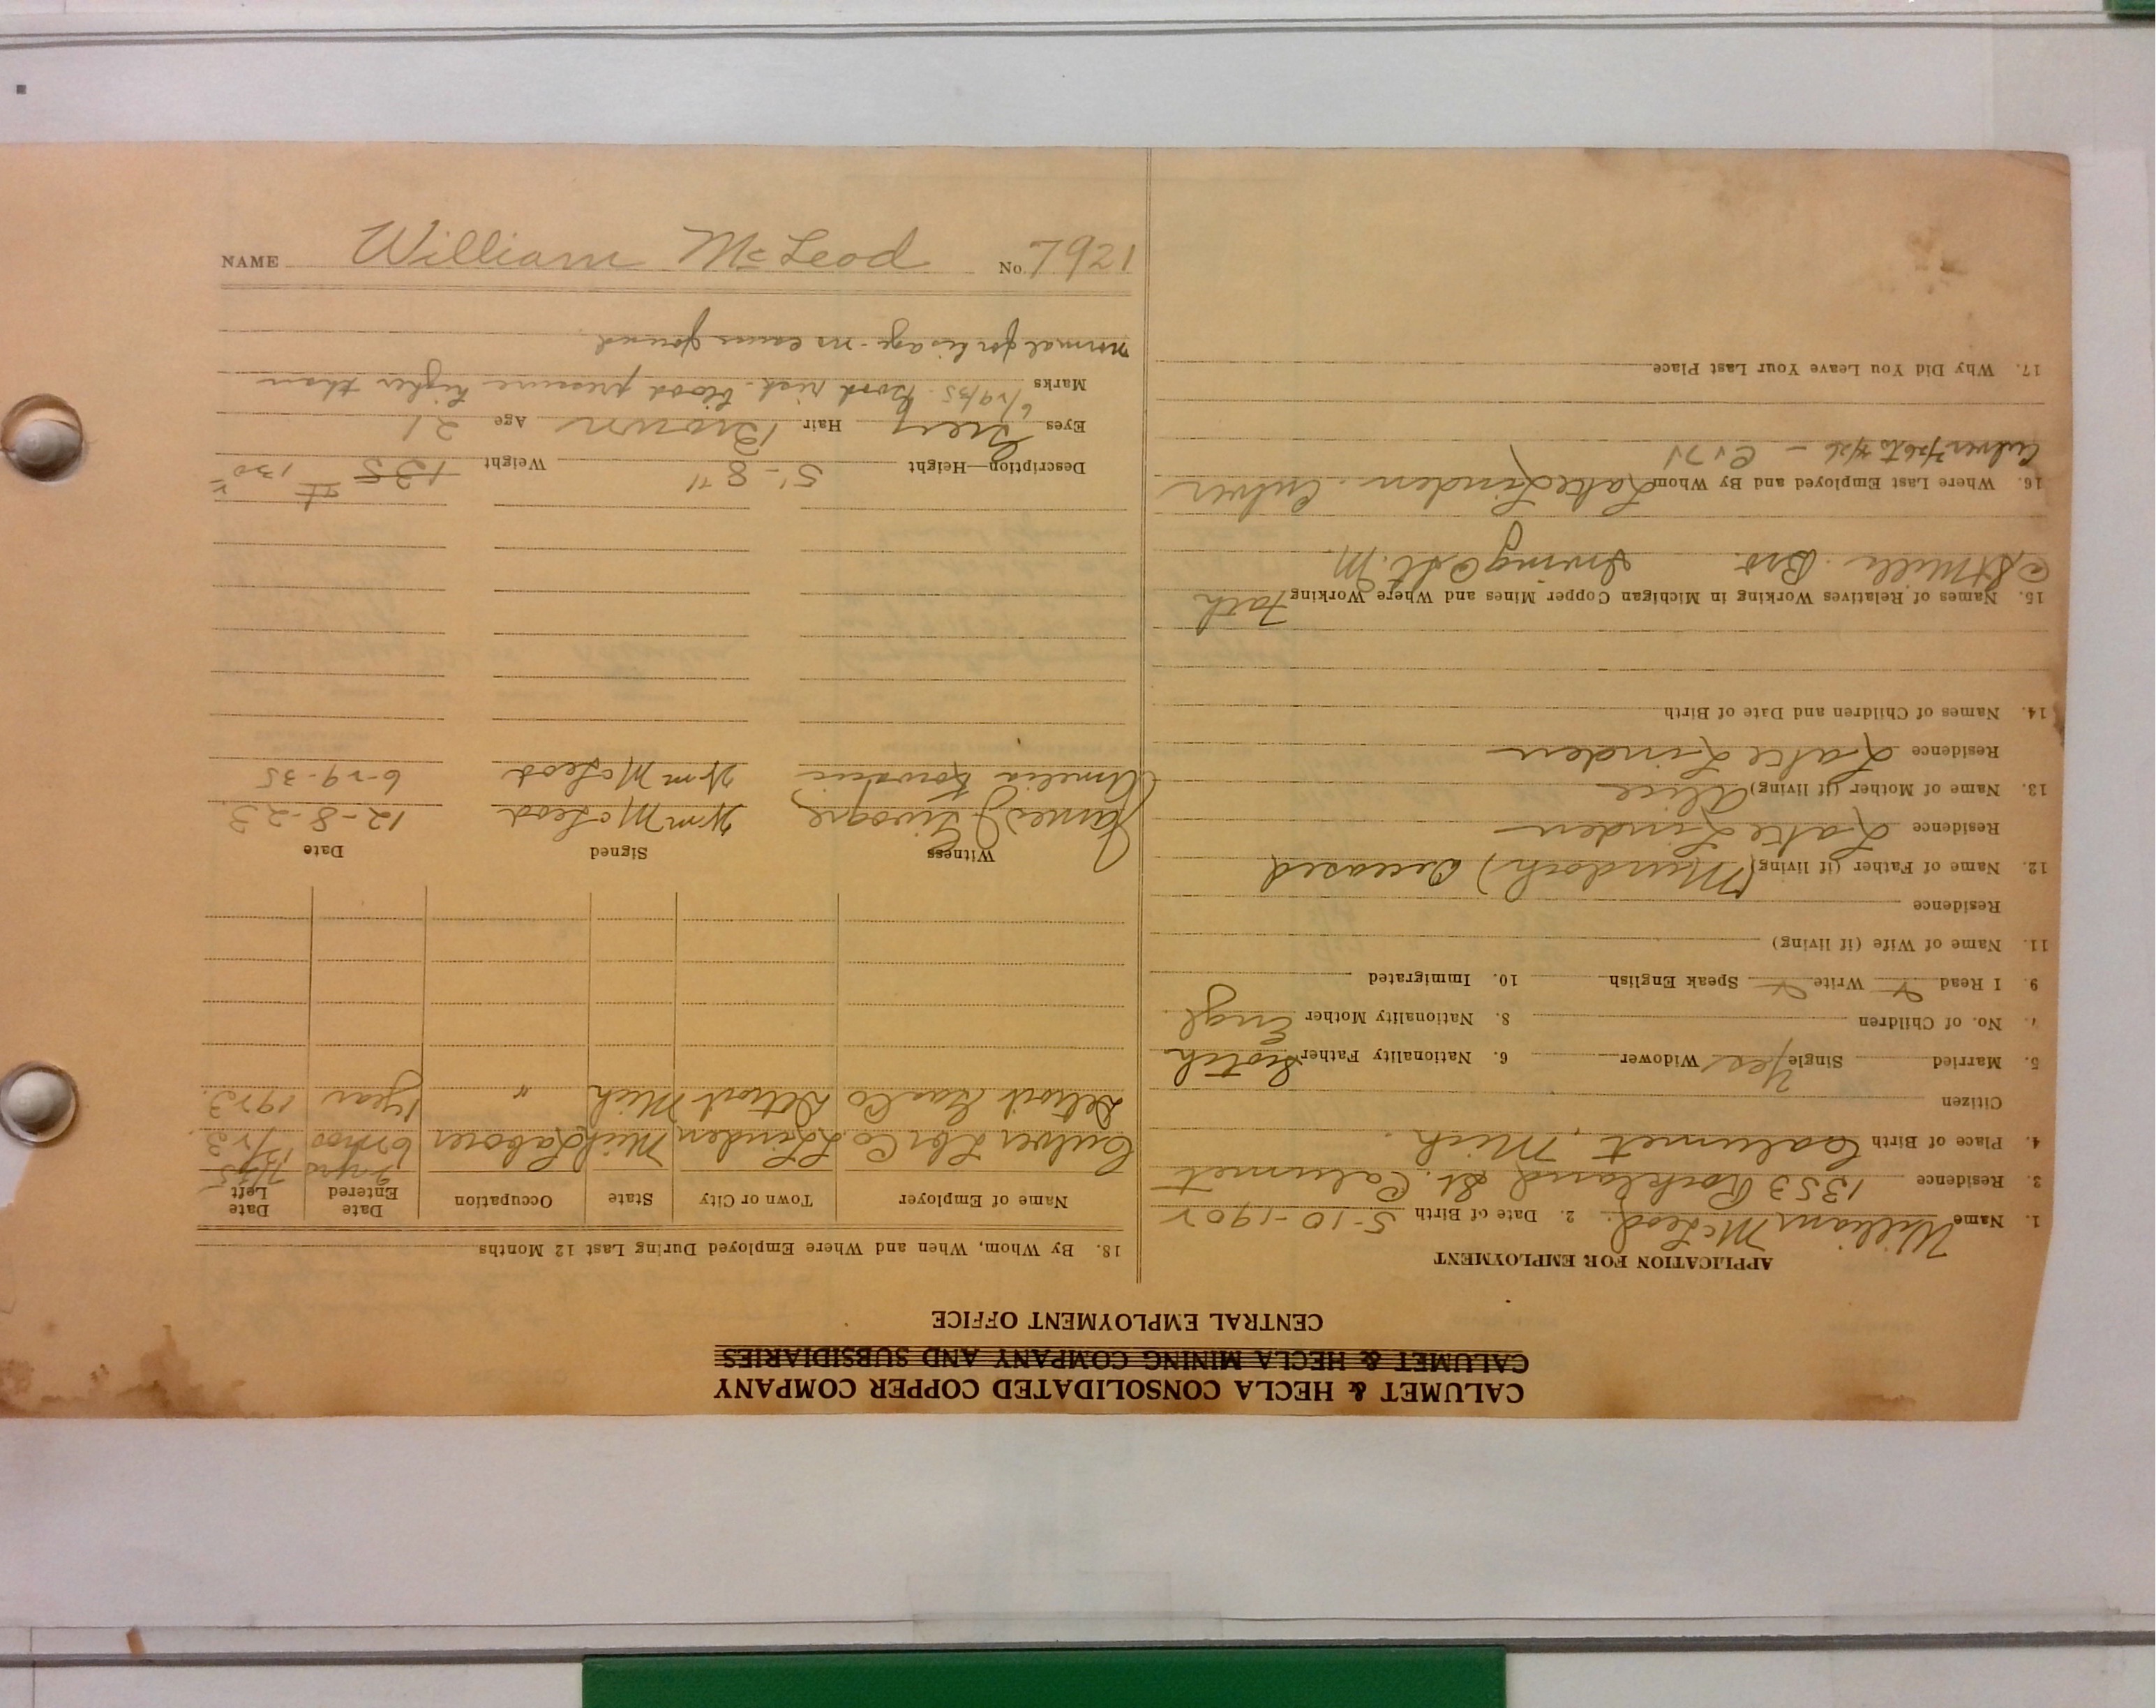 CALUMET & HECLA CONSOLIDATED COPPER COMPANY
CALUMET & HECLA MINING COMPANY AND SUBSIDIARIES
CENTRAL EMPLOYMENT OFFICE
APPLICATION FOR EMPLOYMENT
1. Name William McLeod. 2. Date of Birth 5-10-1902
3. Residence 1353 Rockland St. Calumet
4. Place of Birth Calumet, Mich.
Citizen
5. Married Single Yes Widower 6. Nationality Father Scotch
7. No. of Children 8. Nationality Mother Engl
9. I Read Write Speak English 10. Immigrated
11. Name of Wife (if living)
Residence
12. Name of Father (if living) (Murdoch) Deceased
Residence Lake Linden
13. Name of Mother (if living) Alice
Residence Lake Linden
14. Names of Children and Date of Birth
15. Names of Relatives Working in Michigan Copper Mines and Where Working Fath
St Mill. Bro. Irving St. M.
16. Where Last Employed and By Whom Lake Linden. Culver
Culver
17. Why Did You Leave Your Last Place
18. By Whom, When and Where Employed During Last 12 Months
Name of Employer Town or City State Occupation Date Entered Date Left
2 yrs
Culver Lbr Co. L Linden Mich Laborer 6 mos
Detroit Gas Co Detroit Mich " 1 year 1923.
Witness Signed Date
James J Wm McLeod 12-8-23
Amelia Wm McLeod 6-29-35
Description—Height 5'-8" Weight 135 130
Eyes Grey Hair Brown Age 21
Marks 6/29/35. Good risk - blood pressure higher than
normal for his age - no cause found
NAME William McLeod No. 7921